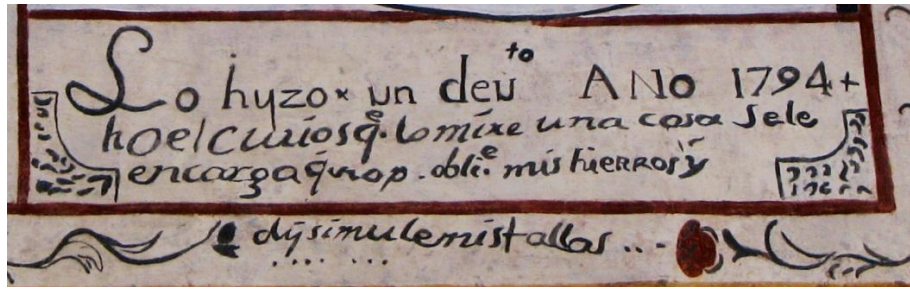 Lo hyzo × un devto ANo 1794+
ho el curiosq.e lo mire una cosa sele
encarga q̃ no p. oblie. mis hierros y
dysimule mis tallas ...